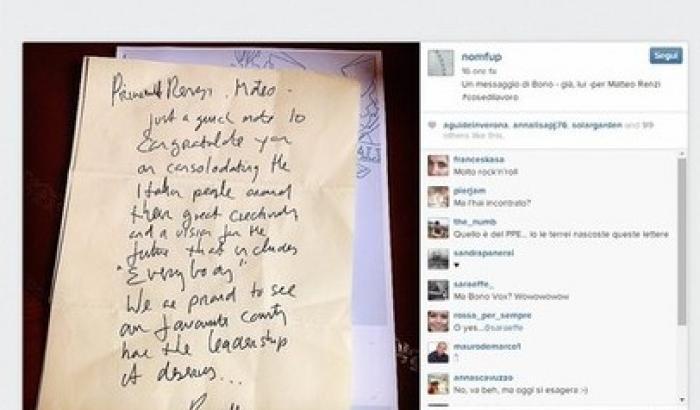 Renzi, Matteo -
just a quick note to
Congratulate you
on consolodating the
Italian people around
their great creativity
and a vision for the
future that includes
"Everybody"
We are proud to see
our favourite country
have the leadership
it deserves...
nomfup
Segui
16 ore fa
Un messaggio di Bono - già, lui -per Matteo Renzi
#cosedilavoro
aguideinverona, annalisapj76, solargarden and 99
others like this.
franceskasa
Molto rock'n'roll
pierjam
Ma l'hai incontrato?
the_numb
Quello è del PPE... io le terrei nascoste queste lettere
sandrapanerai
♥
saraeffe_
Ma Bono Vox? Wowowowow
rossa_per_sempre
O yes...@saraeffe
maurodemarco1
annascavuzzo
No, va beh, ma oggi si esagera :-)